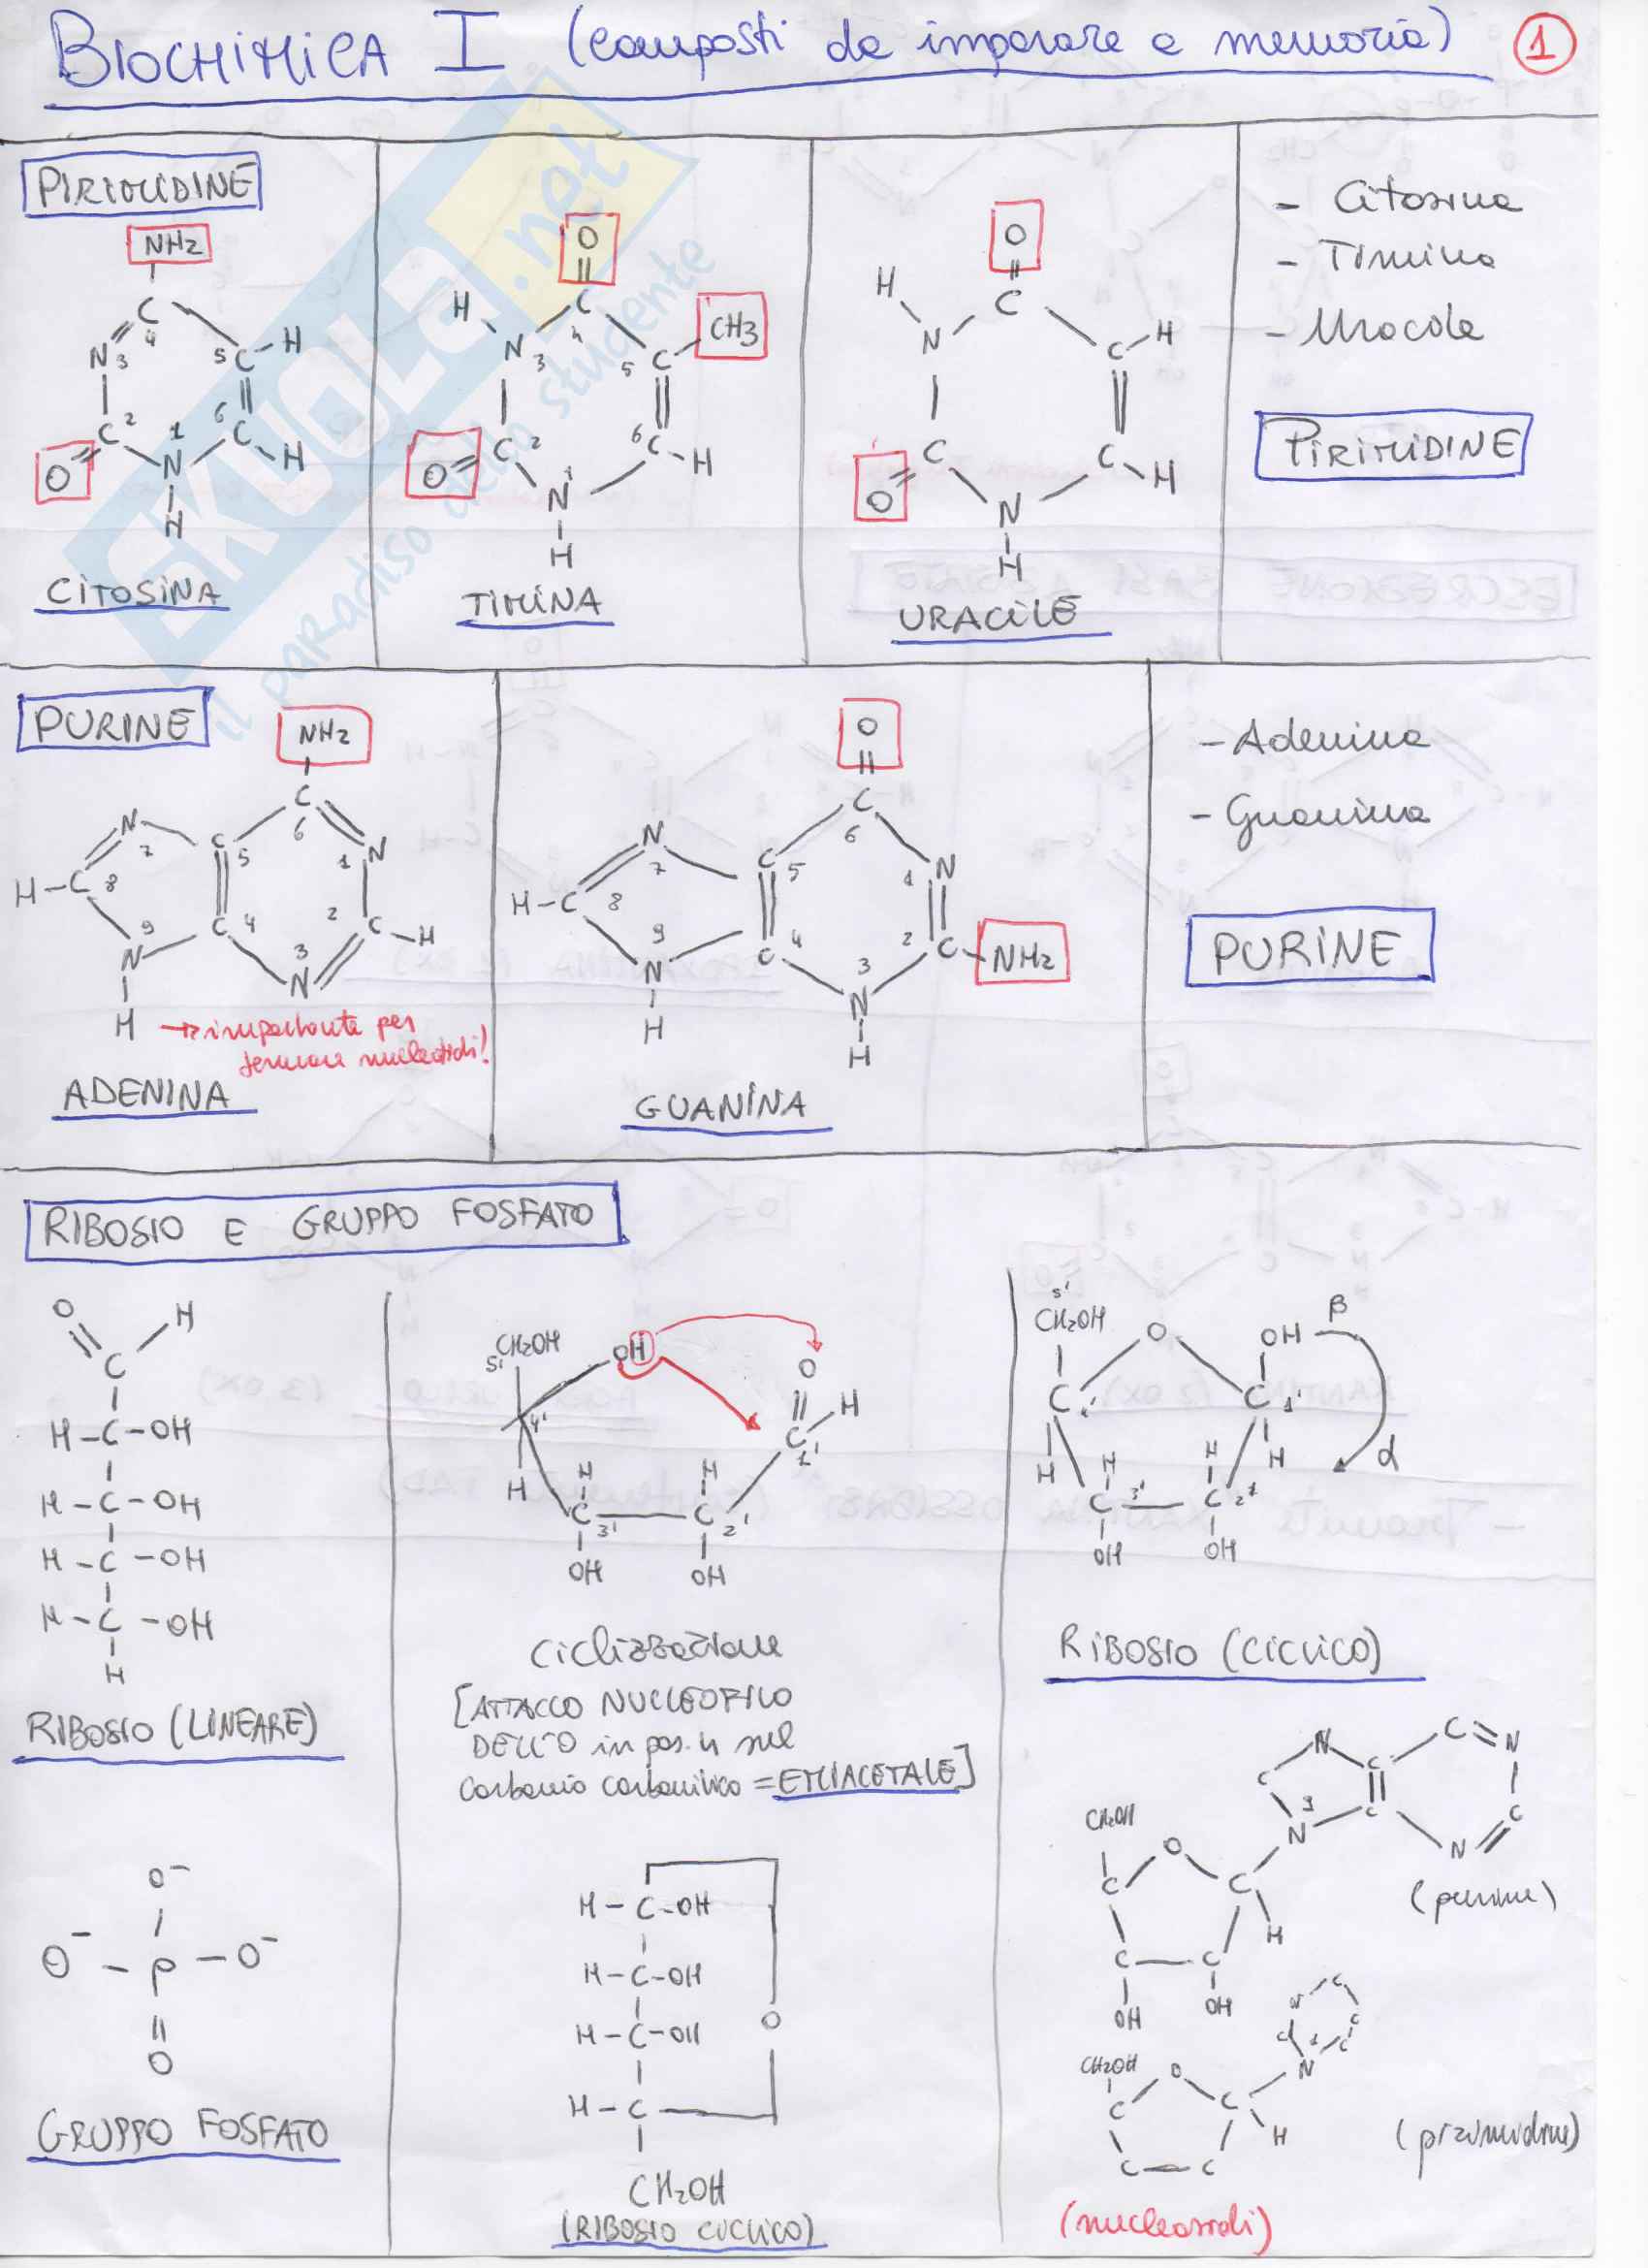 BIOCHIMICA I (composti da imparare a memoria) 1
PIRIMIDINE
NH2
C
4
N 3
5 C H
C 2
1
6 C H
O
N
H
CITOSINA
O
C
4
H
N 3
CH3
5 C
C 2
6 C H
O
N 1
H
TIMINA
O
C
H
N
C H
C
C H
O
N
H
URACILE
- Citosina
- Timina
- Uracile
PIRIMIDINE
PURINE
NH2
C
6
N 7
C 5
1 N
H-C 8
9
N
C 4
2 C-H
3
N
H → importante per
formare nucleotidi!
ADENINA
O
C
6
N
7
C 5
1 N
H-C 8
9
N
C 4
2 C-NH2
3
N
H
H
GUANINA
- Adenina
- Guanina
PURINE
RIBOSIO E GRUPPO FOSFATO
O H
C
H-C-OH
H-C-OH
H-C-OH
H-C-OH
H
RIBOSIO (LINEARE)
5' CH2OH
OH
O
4'
C H
1'
H
H H
C 3' C 2'
OH OH
Ciclizzazione
[ATTACCO NUCLEOFILO
DELL'O in pos. 4 sul
carbonio carbonilico = EMIACETALE]
5'
CH2OH
O
OH β
C 4' C 1'
H H H H α
C 3' C 2'
OH OH
RIBOSIO (CICLICO)
O-
O- - P - O-
O
GRUPPO FOSFATO
H-C-OH
H-C-OH
H-C-OH
O
H-C
CH2OH
(RIBOSIO CICLICO)
N C N
C C
N C C
N
CH2OH O
C C
H
C C
OH OH
(purine)
CH2OH O
C C N
H
C C
(pirimidine)
(nucleosidi)
skuola.net
il paradiso dello studente